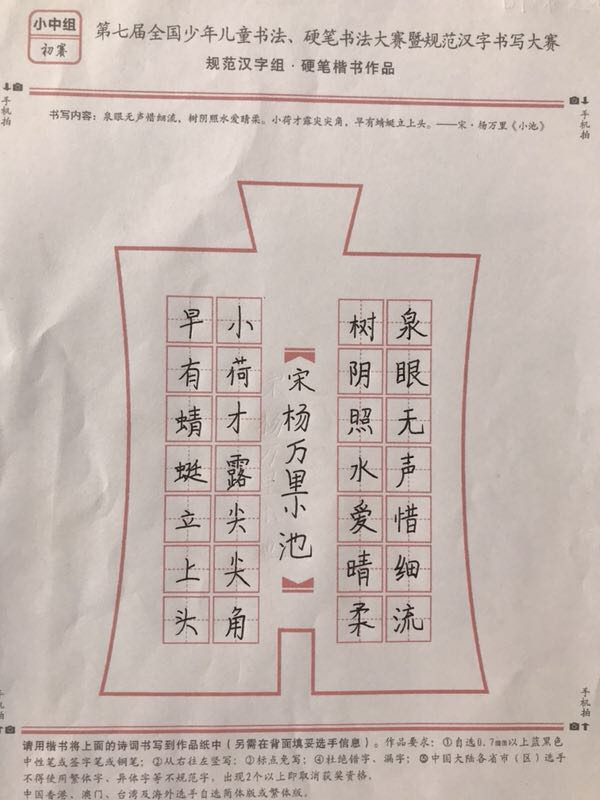 小中组
初赛
第七届全国少年儿童书法、硬笔书法大赛暨规范汉字书写大赛
规范汉字组·硬笔楷书作品
手机拍
手机拍
书写内容：泉眼无声惜细流，树阴照水爱晴柔。小荷才露尖尖角，早有蜻蜓立上头。——宋·杨万里《小池》
泉眼无声惜细流
树阴照水爱晴柔
宋杨万里小池
小荷才露尖尖角
早有蜻蜓立上头
手机拍
手机拍
请用楷书将上面的诗词书写到作品纸中（另需在背面填妥选手信息）。作品要求：①自选0.7mm以上蓝黑色
中性笔或签字笔或钢笔；②从右往左竖写；③标点免写；④杜绝错字、漏字；⑤中国大陆各省市（区）选手
不得使用繁体字、异体字等不规范字，出现2个以上即取消获奖资格，
中国香港、澳门、台湾及海外选手自选简体版或繁体版。